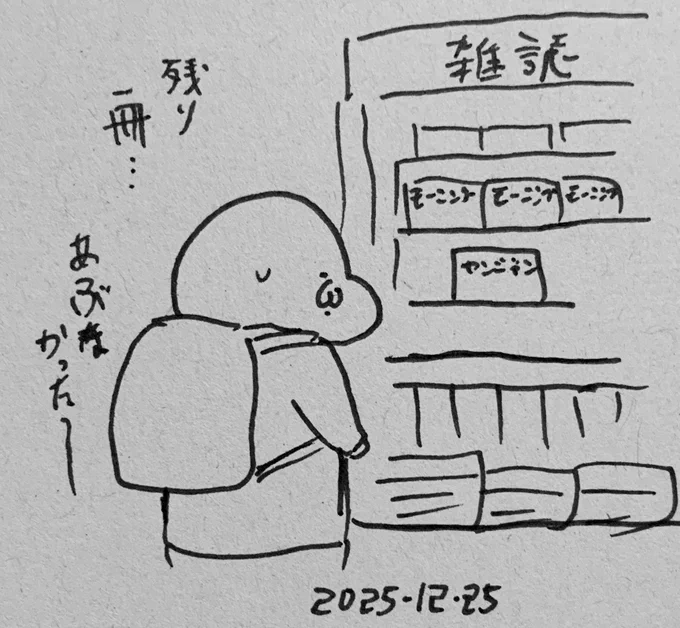 雑誌
残り
一冊…
モーニング
モーニング
モーニング
あぶな
かった〜
2025.12.25